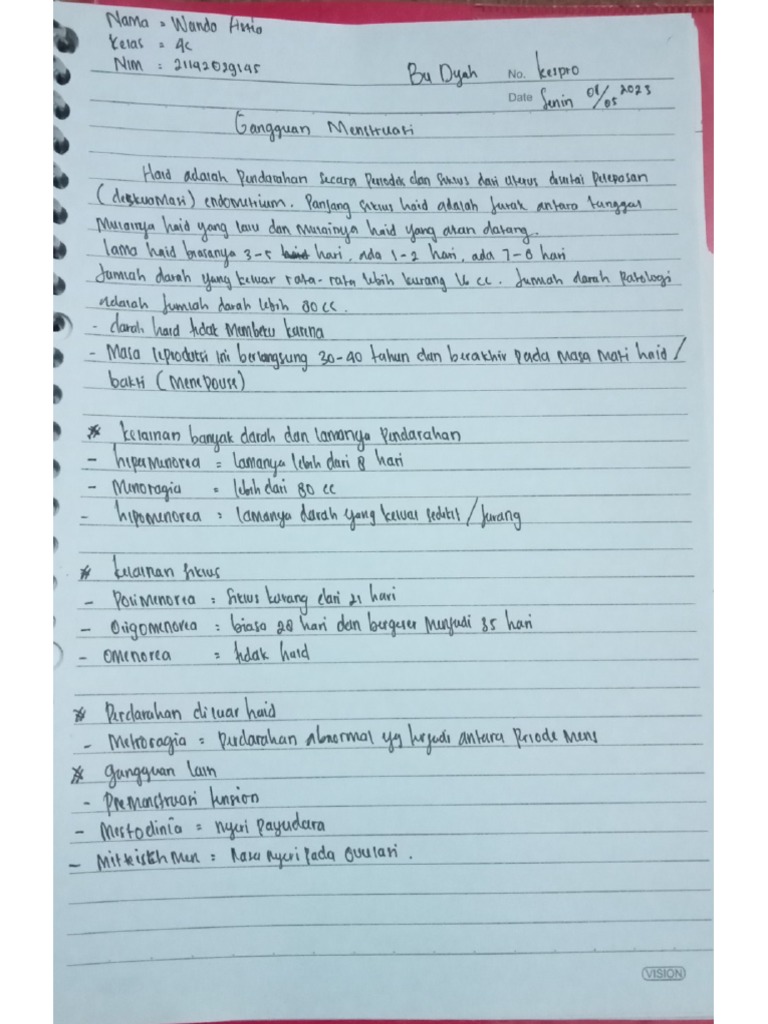 Nama = Wando
Kelas = 4c
Nim : 21142029145
Bu Dyah No. kespro
Date Senin 08/05 2023
Gangguan Menstruasi
Haid adalah pendarahan secara periodek dan siklus dari uterus disertai pelepasan
(deskuamasi) endometrium. Panjang siklus haid adalah jarak antara tanggal
mulainya haid yang lalu dan mulainya haid yang akan datang.
lama haid biasanya 3-5 hari, ada 1-2 hari, ada 7-8 hari
Jumlah darah yang keluar rata-rata lebih kurang 16 cc. Jumlah darah patologi
adalah jumlah darah lebih 80 cc.
- darah haid tidak membeku karena
- Masa reproduksi ini berlangsung 30-40 tahun dan berakhir pada masa mati haid /
bakti (Menepouse)
* kelainan banyak darah dan lamanya pendarahan
- hipermenorea = lamanya lebih dari 8 hari
- Menoragia = lebih dari 80 cc
- hipomenorea : lamanya darah yang keluar sedikit / jurang
* kelainan siklus
- Polimenorea = siklus kurang dari 21 hari
- Oligomenorea : biasa 28 hari dan bergeser menjadi 35 hari
- omenorea = tidak haid
* Perdarahan diluar haid
- Metroragia = perdarahan abnormal yg terjadi antara priode mens
* gangguan lain
- Premenstruasi tension
- Mestodinia = nyeri payudara
- : Rasa nyeri pada ovulasi.
VISION